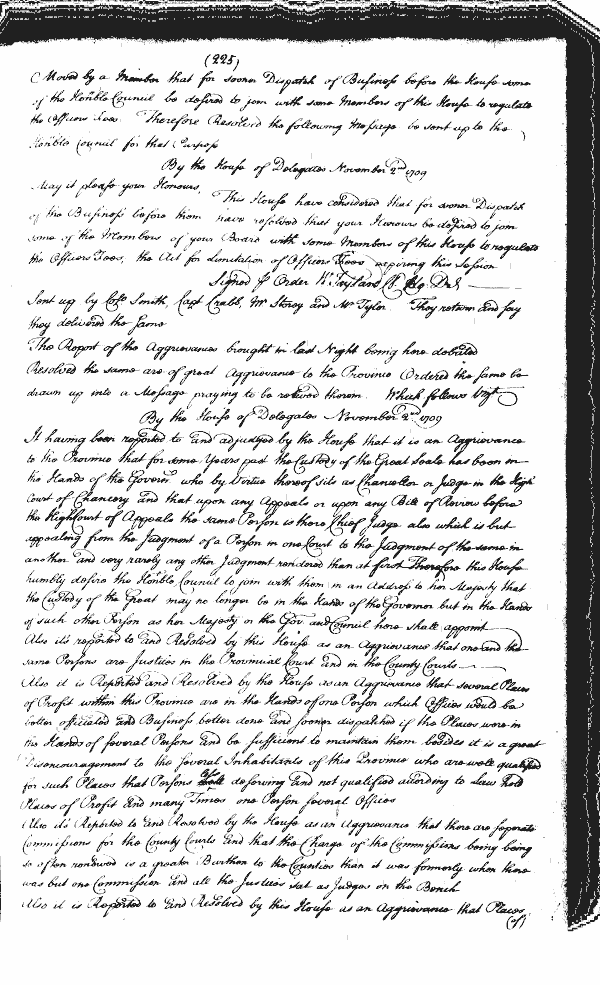 (225)
Moved by a Member that for sooner Dispatch of Business before the House some
of the Honble Council be desired to join with some Members of this House to regulate
the Officers Fees. Therefore Resolved the following Message be sent up to the
Honble Council for that Purpose
By the House of Delegates November 2nd 1709
May it please your Honours,
This House have considered that for sooner Dispatch
of the Business before them have resolved that your Honours be desired to join
some of the Members of your Board with some Members of this House to regulate
the Officers Fees, the Act for Limitation of Officers Fees expiring this Session
Signed p Order W Taylard Cl. Ho. Del.
Sent up by Collo Smith, Capt Crabb, Mr Storey and Mr Tyler They return and say
they delivered the same
The Report of the Aggrievances brought in last Night being here debated
Resolved the same are of great Aggrievance to the Province Ordered the same be
drawn up into a Message praying to be relieved therein. Which follows Vizt
By the House of Delegates November 2nd 1709
It having been reported to and adjudged by the House that it is an Aggrievance
to the Province that for some Years past the Custody of the Great Seale has been in
the Hands of the Governr who by Virtue thereof sits as Chancellor or Judge in the High
Court of Chancery and that upon any Appeals or upon any Bill of Review before
the High Court of Appeals the same Person is there Chief Judge also which is but
appealing from the Judgment of a Person in one Court to the Judgment of the same in
another and very rarely any other Judgment rendered than at first Therefore this House
humbly desire the Honble Council to join with them in an Address to her Majesty that
the Custody of the Great may no longer be in the Hands of the Governor but in the Hands
of such other Person as her Majesty or the Gov. and Council here shall appoint
Also its reported to and Resolved by this House as an Aggrievance that one and the
same Persons are Justices in the Provincial Court and in the County Courts
Also it is Reported and Resolved by the House as an Aggrievance that several Places
of Profit within this Province are in the Hands of one Person which Offices would be
better officiated and Business better done and sooner dispatched if the Places were in
the Hands of several Persons and be sufficient to maintain them besides it is a great
Discouragement to the several Inhabitants of this Province who are well qualified
for such Places that Persons deserving and not qualified according to Law hold
Places of Profit and many Times one Person several Offices
Also its Reported to and Resolved by the House as an Aggrievance that there are seperate
Commissions for the County Courts and that the Charge of the Commissions being being
so often renewed is a greater Burthen to the Counties than it was formerly when there
was but one Commission and all the Justices sat as Judges on the Bench
Also it is Reported to and Resolved by this House as an Aggrievance that Places
(of)